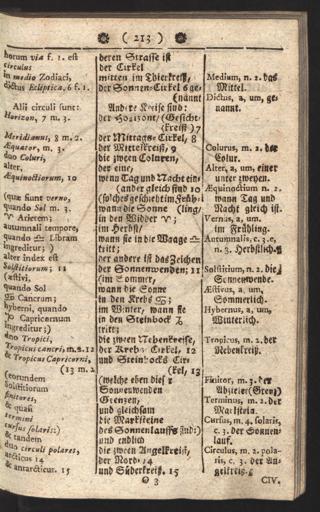 ( 213 )
horum via f. 1. est
circulus
in medio Zodiaci,
dictus Ecliptica, 6 f. 1.
Alii circuli sunt:
Horizon, 7 m. 3.
Meridianus, 8 m. 2.
Æquator, m. 3.
duo Coluri,
alter,
Æquinoctiorum, 10
(quæ sunt verno,
quando Sol m. 3.
♈ Arietem;
autumnali tempore,
quando ♎ Libram
ingreditur; )
alter index est
Solstitiorum; 11
(æstivi,
quando Sol
♋ Cancrum;
hyberni, quando
♑ Capricornum
ingreditur;)
duo Tropici,
Tropicus cancri, m. 2. 12
& Tropicus Capricorni,
(13 m. 2
(eorundem
Solstitiorum
finitores,
& quasi
termini
cursus solaris:)
& tandem
duo circuli polares,
arcticus 14
& antarcticus. 15
deren Strasse ist
der Cirkel
mitten im Thierkreiß,
der Sonnen-Cirkel 6 ge-
(nännt
Andere Kreise sind:
der Horizont/ (Gesicht-
(kreiß) 7
der Mittags-Cirkel, 8
der Mittelkreiß, 9
die zween Coluren,
der eine,
wenn Tag und Nacht ein-
(ander gleich sind 10
(solches geschieht im Früh-
wann die Sonne (ling/
in den Widder ♈;
im Herbst/
wann sie in die Waage ♎
tritt;
der andere ist das Zeichen
der Sonnenwenden; 11
(im Sommer,
wann die Sonne
in den Krebs ♋;
im Winter, wann sie
in den Steinbock ♑
tritt;
die zween Nebenkreise,
der Krebs-Cirkel, 12
und Steinbocks Cir-
(kel, 13
(welche eben dieser
Sonnenwenden
Grenzen,
und gleichsam
die Marksteine
des Sonnenlauffs sind:)
und endlich
die zween Angelkreiß,
der Nord- 14
und Süderkreiß. 15
O 3
Medium, n. 2. das
Mittel.
Dictus, a, um, ge-
nannt.
Colurus, m. 2. der
Colur.
Alter, a, um, einer
unter zweyen.
Æquinoctium n. 2.
wann Tag und
Nacht gleich ist.
Vernus, a, um,
im Frühling.
Autumnalis, c. 3. e,
n. 3. Herbstlich.
Solstitium, n. 2. die
Sonnenwende.
Æstivus, a, um,
Sommerlich.
Hybernus, a, um,
Winterlich.
Tropicus, m. 2. der
Nebenkreiß.
Finitor, m. 3. der
Terminus, m. 2. der
Markstein.
Cursus, m. 4. solaris,
c. 3. der Sonnen-
lauf.
Circulus, m. 2. pola-
ris, c. 3. der An-
gelkreiß.
CIV.